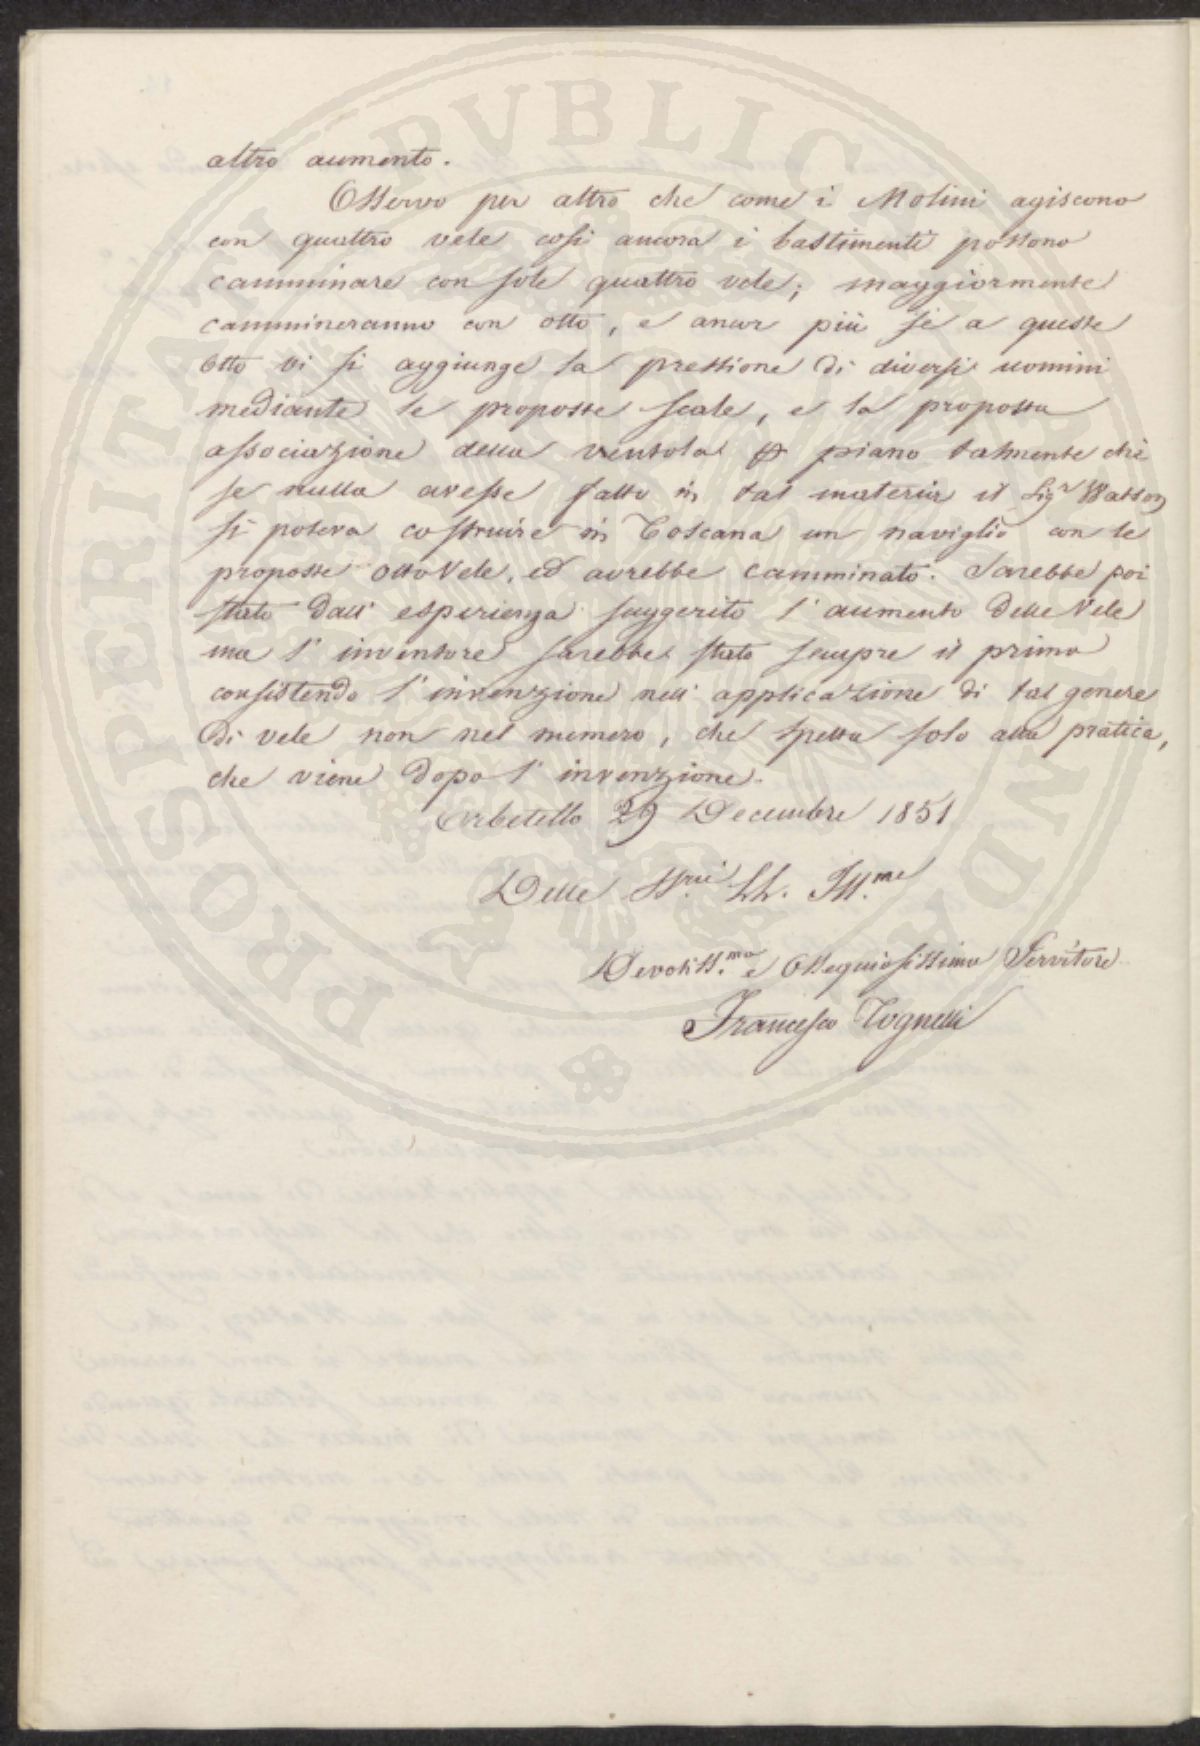 altro aumento.
Osservo per altro che come i Molini agiscono
con quattro vele così ancora i bastimenti possono
camminare con sole quattro vele; maggiormente
cammineranno con otto, e ancor più se a queste
otto vi si aggiunge la pressione di diversi uomini
mediante le proposte scale, e la proposta
associazione della ventola piano talmente chè
se nulla avesse fatto in tal materia il Sig.r Watson
si poteva costruire in Toscana un naviglio con le
proposte otto Vele, ed avrebbe camminato. Sarebbe poi
stato dall' esperienza suggerito l' aumento delle Vele
ma l' inventore sarebbe stato sempre il primo
consistendo l' invenzione nell' applicazione di tal genere
di vele non nel numero, che spetta solo alla pratica,
che viene dopo l' invenzione.
Orbetello 29 Decembre 1851
Delle LL. Ill.me
Devotiss.mo e Ossequiosissimo Servitore
Francesco Tognelli
PROSPERITATI PVBLICAE